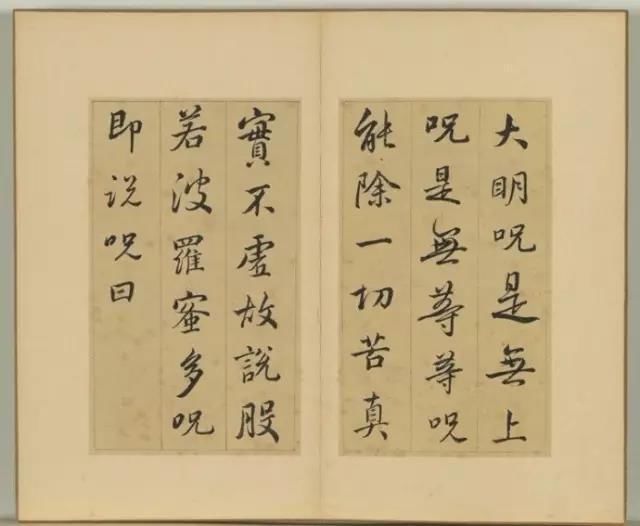 大明呪是無上
呪是無等等呪
能除一切苦真
實不虛故說般
若波羅蜜多呪
即说呪曰